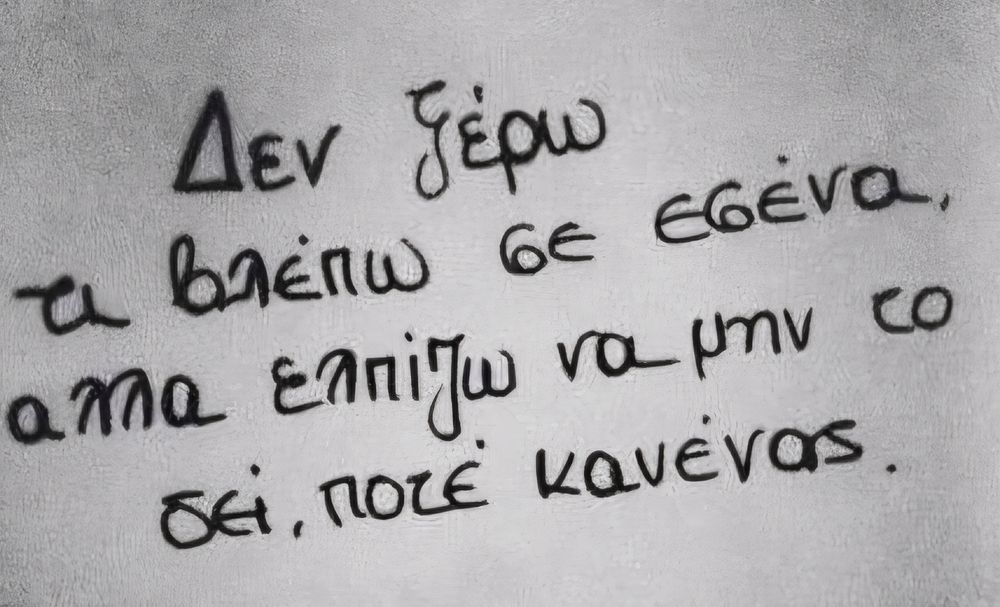 Δεν ξέρω
τι βλέπω σε εσένα,
αλλα ελπίζω να μην το
δει, ποτέ κανένας.